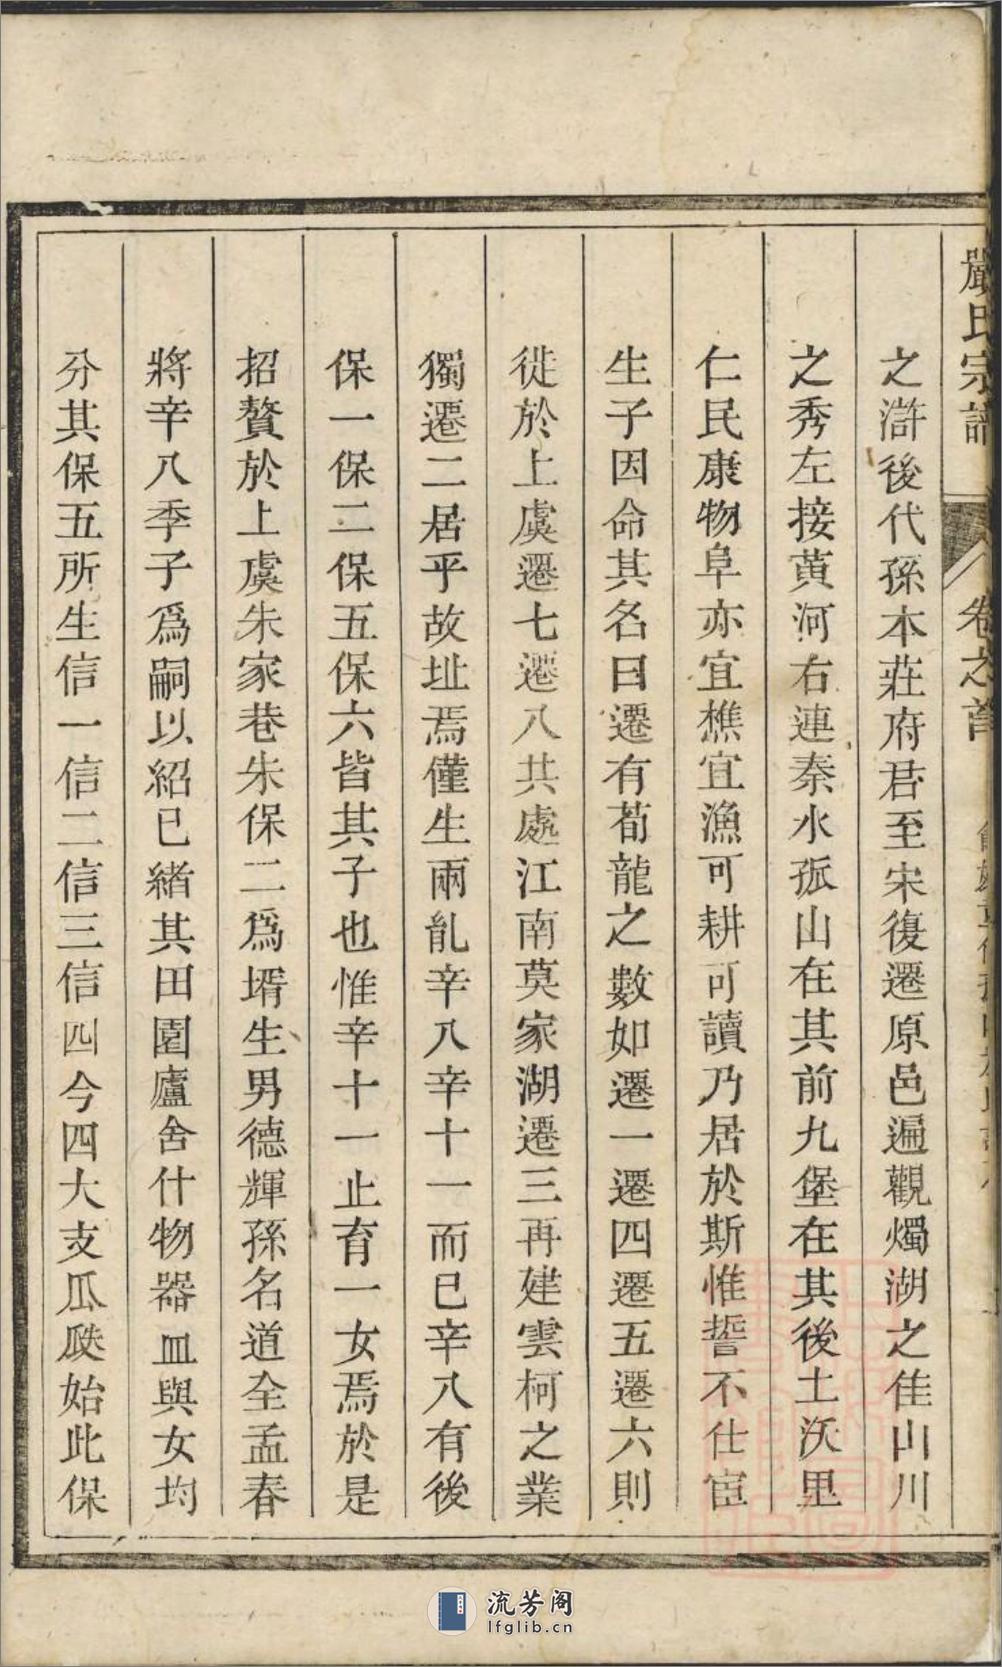 嚴氏宗譜
卷之首
之滸後代孫本莊府君至宋復遷原邑遍觀燭湖之佳山川
之秀左接黄河右連秦水孤山在其前九堡在其後土沃里
仁民康物阜亦宜樵宜漁可耕可讀乃居於斯惟誓不仕宦
生子因命其名曰遷有荀龍之數如遷一遷四遷五遷六則
徙於上虞遷七遷八共處江南莫家湖遷三再建雲柯之業
獨遷二居乎故址焉僅生兩亂辛八辛十一而已辛八有後
保一保二保五保六皆其子也惟辛十一止育一女焉於是
招贅於上虞朱家巷朱保二爲壻生男德輝孫名道全孟春
將辛八季子爲嗣以紹已緒其田園廬舍什物器皿與女均
分其保五所生信一信二信三信四今四大支瓜瓞始此保
流芳阁
lfglib.cn